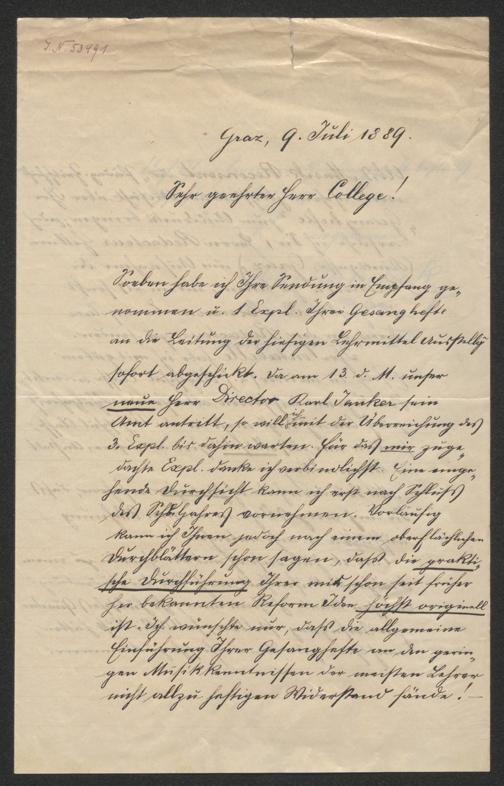 J. N. 53991
Graz, 9. Juli 1889.
Sehr geehrter Herr College!
Soeben habe ich Ihre Sendung in Empfang ge-
nommen u. 1 Expl. Ihrer Gesanghefte
an die Leitung der hiesigen Lehrmittel Ausstellg
sofort abgeschickt. Da am 13. d. M. unser
neue Herr Director Karl Janker sein
Amt antritt, so will ich mit der Überreichung des
3. Expl. bis dahin warten. Für das mir zuge-
dachte Expl. danke ich verbindlichst. Eine einge-
hende Durchsicht kann ich erst nach Schluß
des Schuljahres vornehmen. Vorläufig
kann ich Ihnen jedoch nach einem oberflächlichen
Durchblättern schon sagen, daß die prakti-
sche Durchführung Ihrer mir schon seit früher
her bekannten Reform Idee höchst originell
ist. Ich wünschte nur, daß die allgemeine
Einführung Ihrer Gesanghefte an den gerin-
gen Musikkenntnissen der meisten Lehrer
nicht allzu heftigen Widerstand fände! –